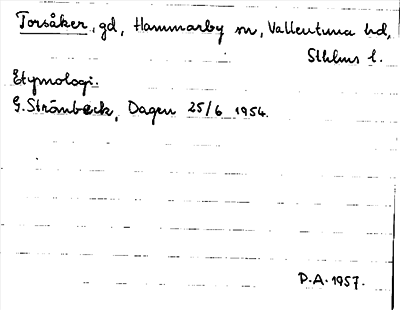 Torsåker, gd, Hammarby sn, Vallentuna hd,
Sthlms l.
Etymologi.
G. Strånbeck, Dagen 25/6 1954.
D.A. 1957.